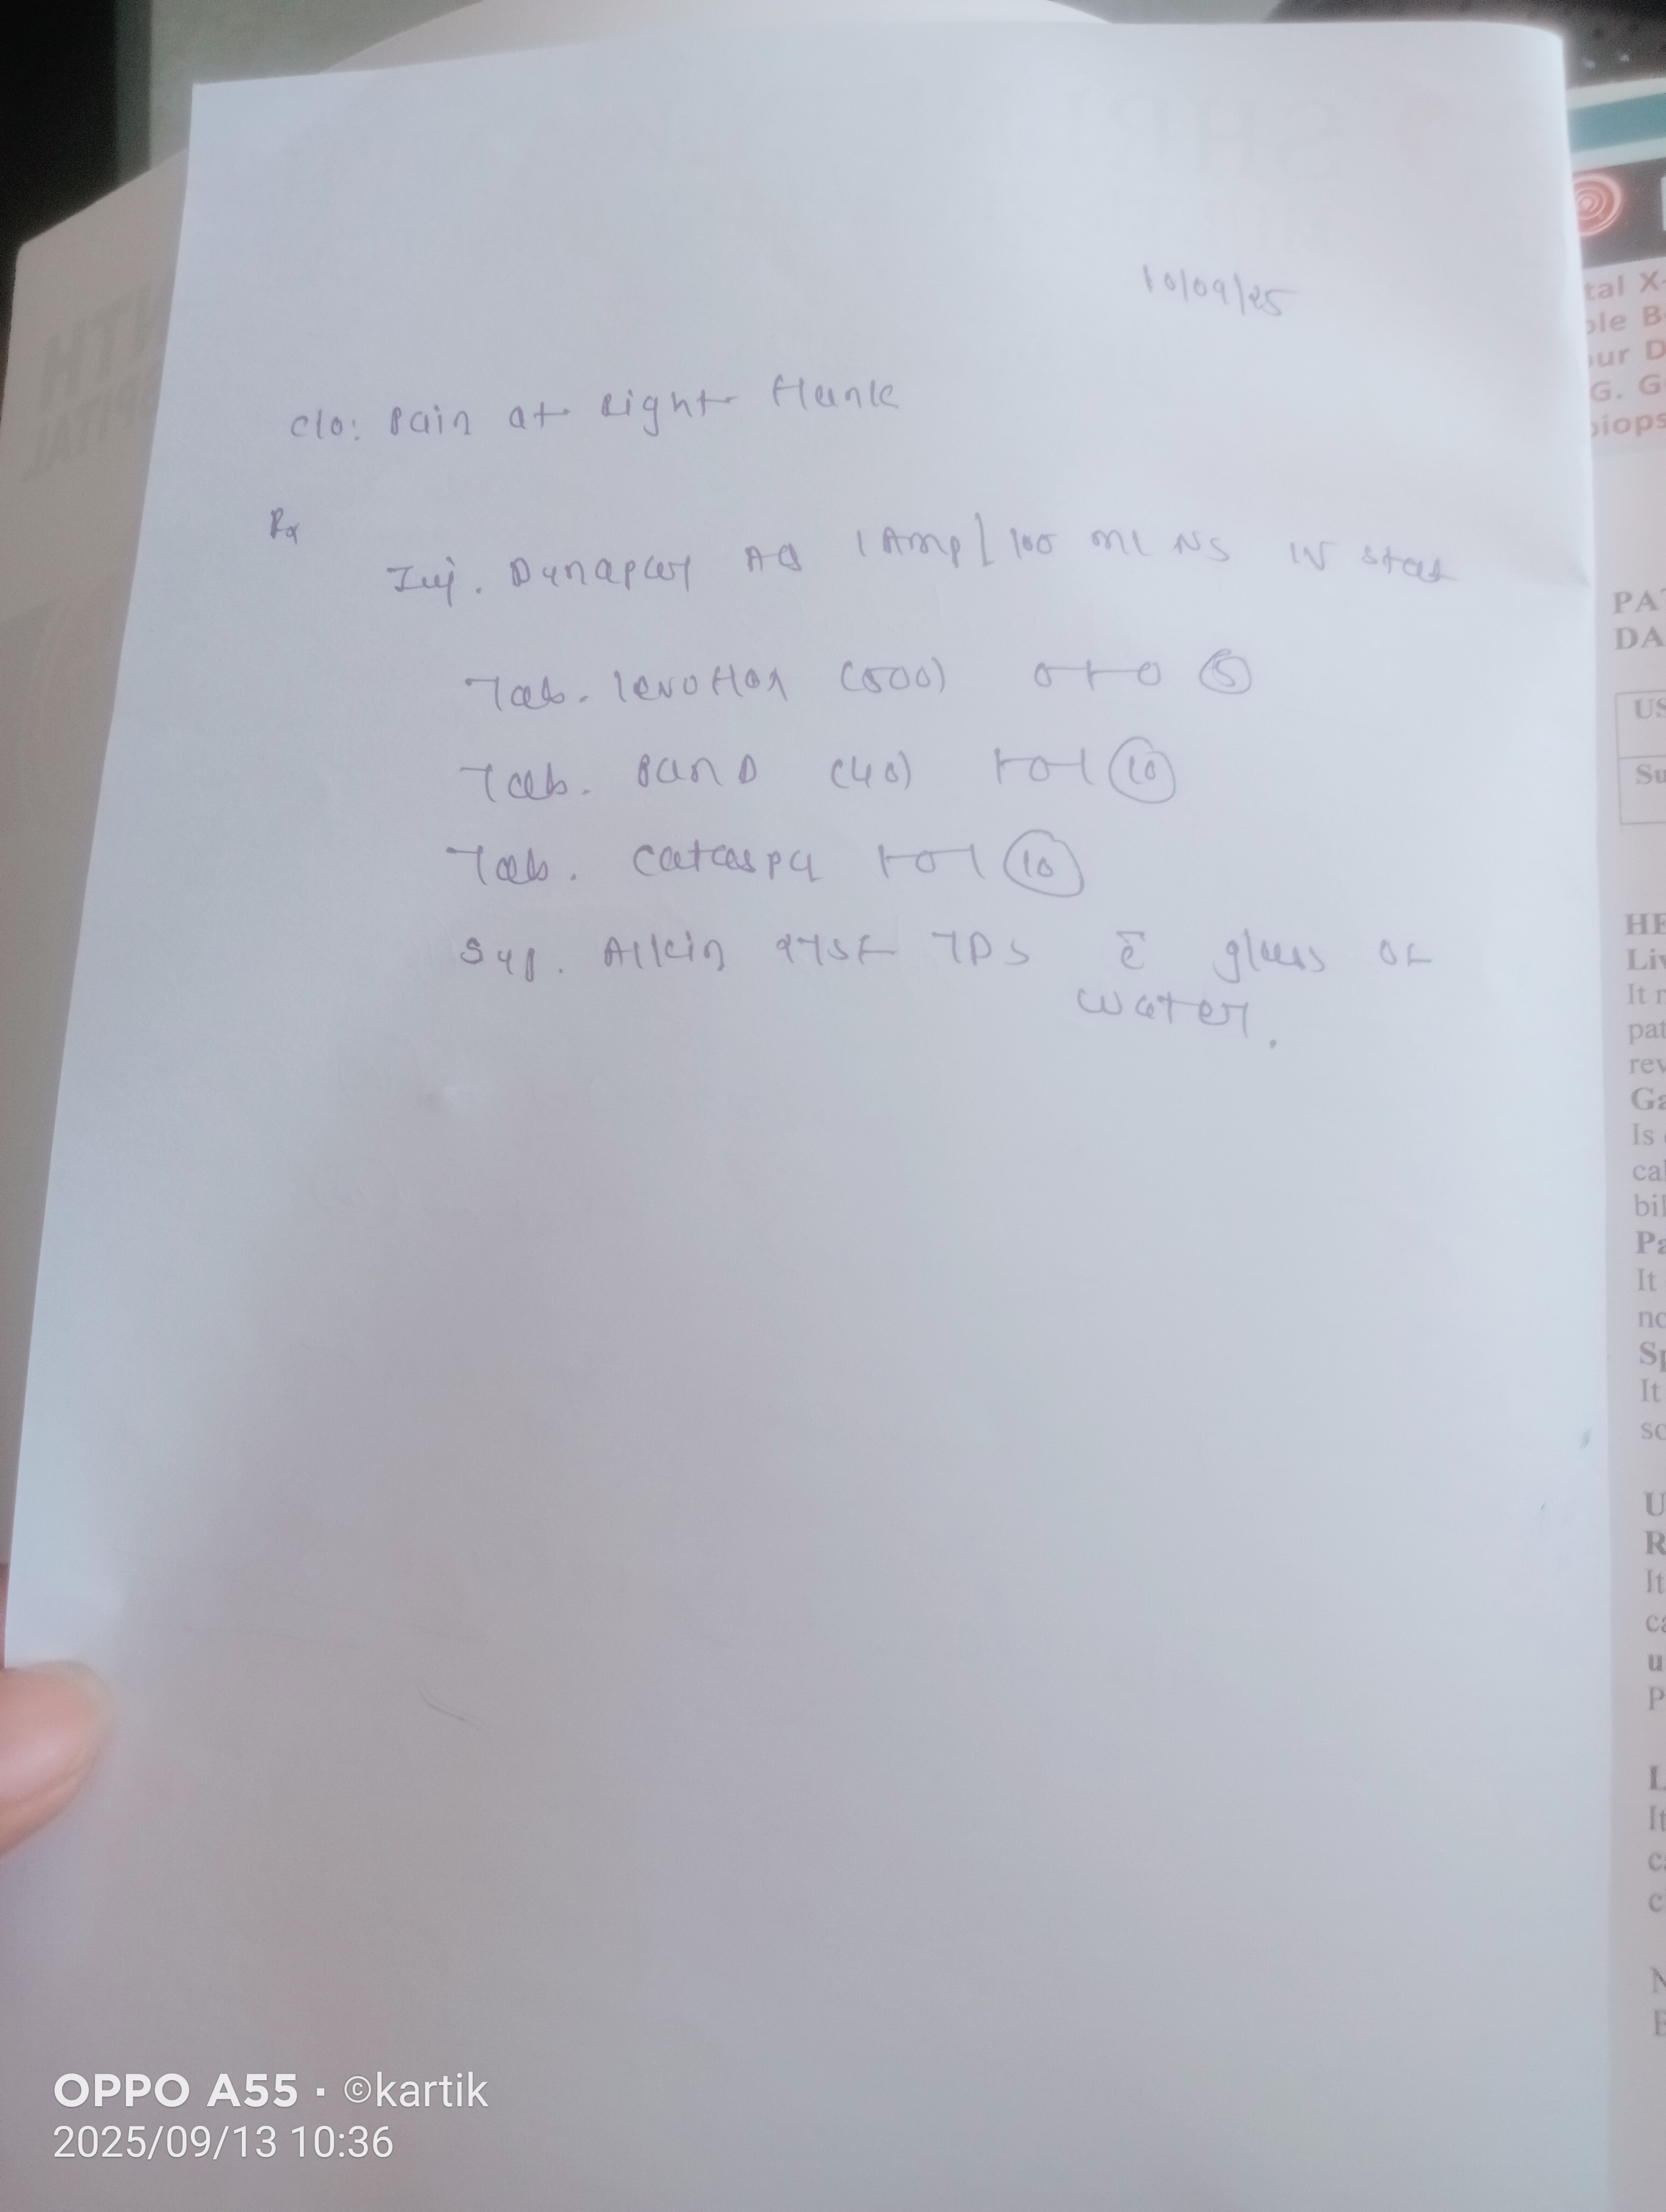 10/09/25
c/o: Pain at Right flank
Rx
Inj. Dynapar AQ 1 Amp / 100 ml NS IV stat
Tab. levoflox (500) 0+0 5
Tab. Pan D (40) 1-0-1 10
Tab. Cataspa 1-0-1 10
Syp. Alkin 2TSF TDS c̄ glass of
water.
tal X-
ple B
our D
G. G
biops
PAT
DA
US
Su
HE
Liv
It r
pat
rev
Ga
Is
cal
bil
Pa
It
no
Sp
It
sc
U
R
It
ca
u
P
L
It
ca
c
N
E
OPPO A55 · ©kartik
2025/09/13 10:36